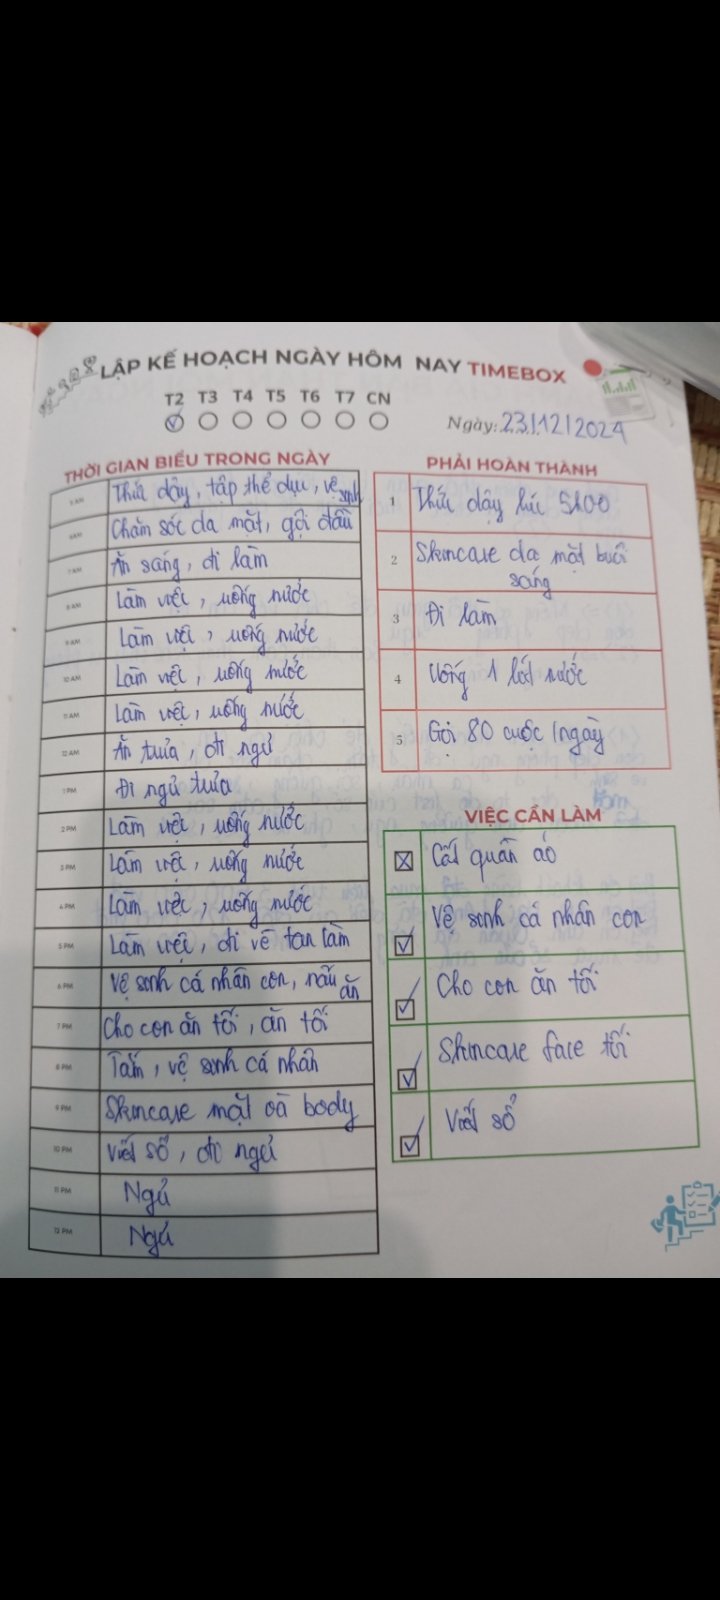 LẬP KẾ HOẠCH NGÀY HÔM NAY TIMEBOX
T2 T3 T4 T5 T6 T7 CN
Ngày: 23/12/2024
THỜI GIAN BIỂU TRONG NGÀY
5 AM Thức dậy, tập thể dục, vệ sinh
6 AM Chăm sóc da mặt, gội đầu
7 AM Ăn sáng, đi làm
8 AM Làm việc, uống nước
9 AM Làm việc, uống nước
10 AM Làm việc, uống nước
11 AM Làm việc, uống nước
12 AM Ăn trưa, đi ngủ
1 PM Đi ngủ trưa
2 PM Làm việc, uống nước
3 PM Làm việc, uống nước
4 PM Làm việc, uống nước
5 PM Làm việc, đi về tan làm
6 PM Vệ sinh cá nhân con, nấu ăn
7 PM Cho con ăn tối, ăn tối
8 PM Tắm, vệ sinh cá nhân
9 PM Skincare mặt và body
10 PM Viết sổ, đi ngủ
11 PM Ngủ
12 PM Ngủ
PHẢI HOÀN THÀNH
1 Thức dậy lúc 5h00
2 Skincare da mặt buổi
sáng
3 Đi làm
4 Uống 1 lít nước
5 Gọi 80 cuộc/ngày
VIỆC CẦN LÀM
Cất quần áo
Vệ sinh cá nhân con
Cho con ăn tối
Skincare face tối
Viết sổ